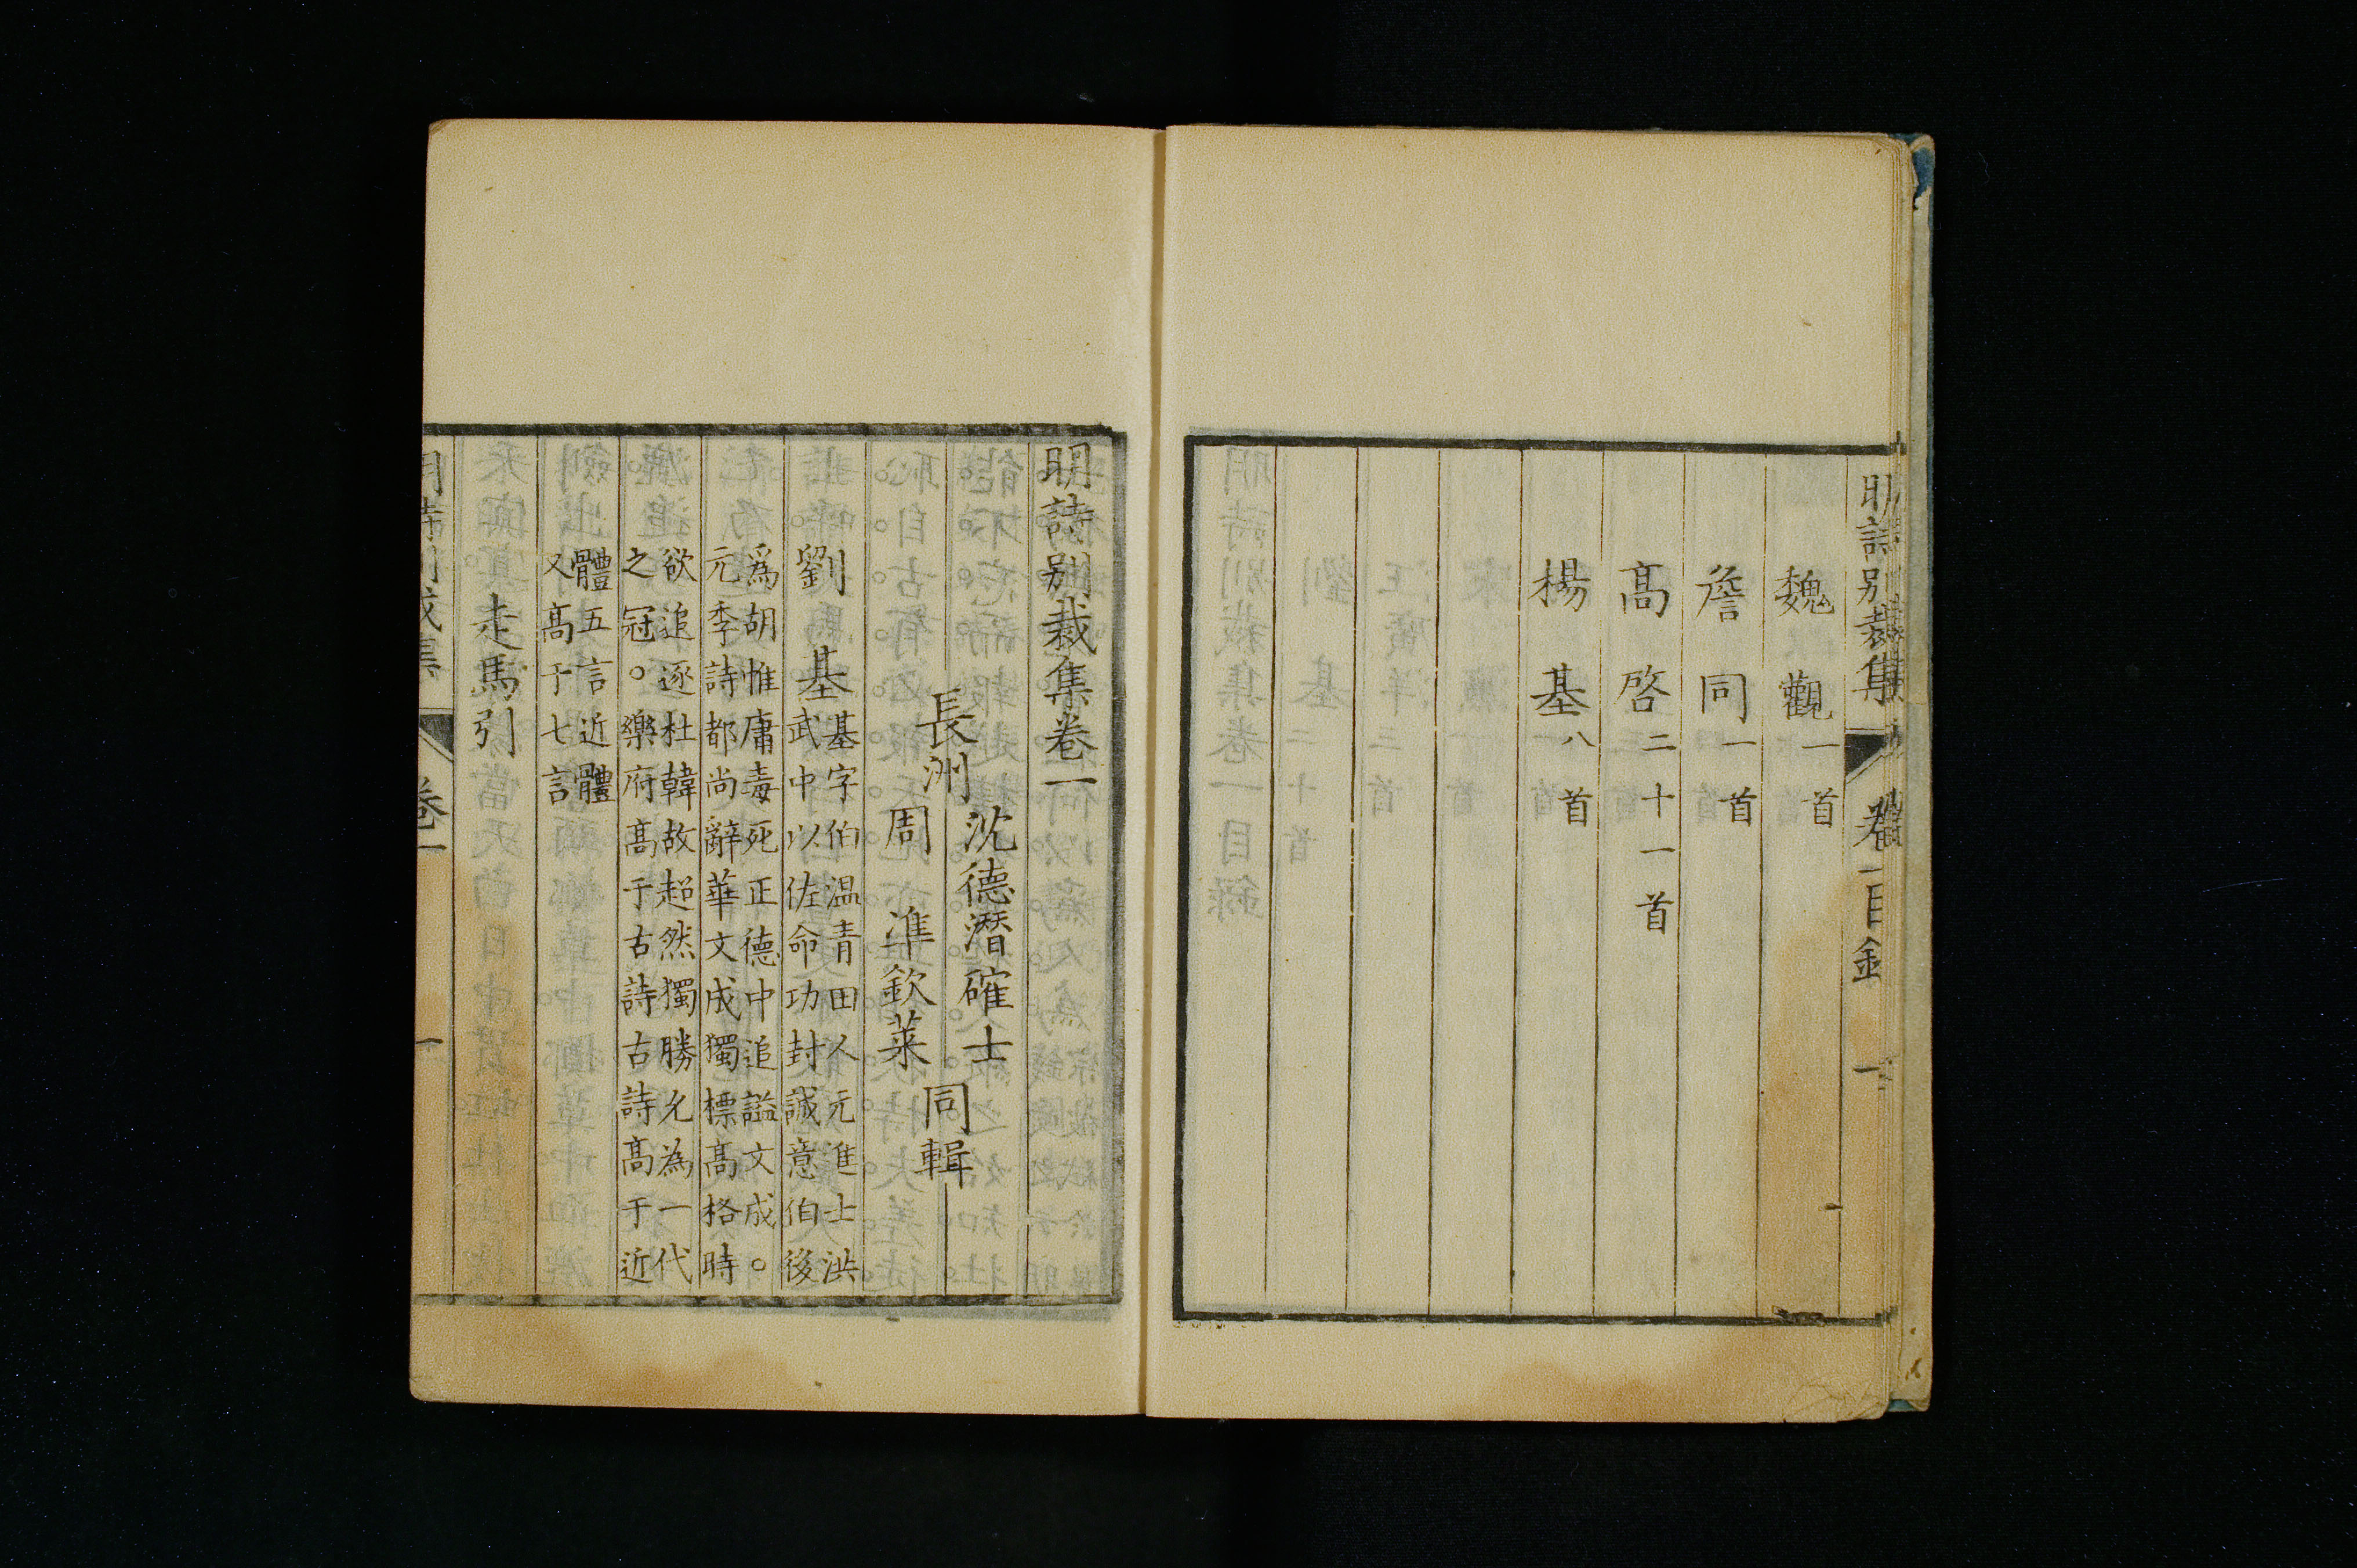 明詩別裁集 卷一目錄 一
魏觀一首
詹同一首
高啓二十一首
楊基八首
明詩別裁集卷一
長洲
沈德潛確士
周準欽萊
同輯
劉基
基字伯温青田人元進士洪
武中以佐命功封誠意伯後
爲胡惟庸毒死正德中追謚文成。
元季詩都尚辭華文成獨標高格時
欲追逐杜韓故超然獨勝允為一代
之冠。樂府高于古詩古詩高于近
體五言近體
又高于七言
走馬引
明詩別裁集 卷一 一